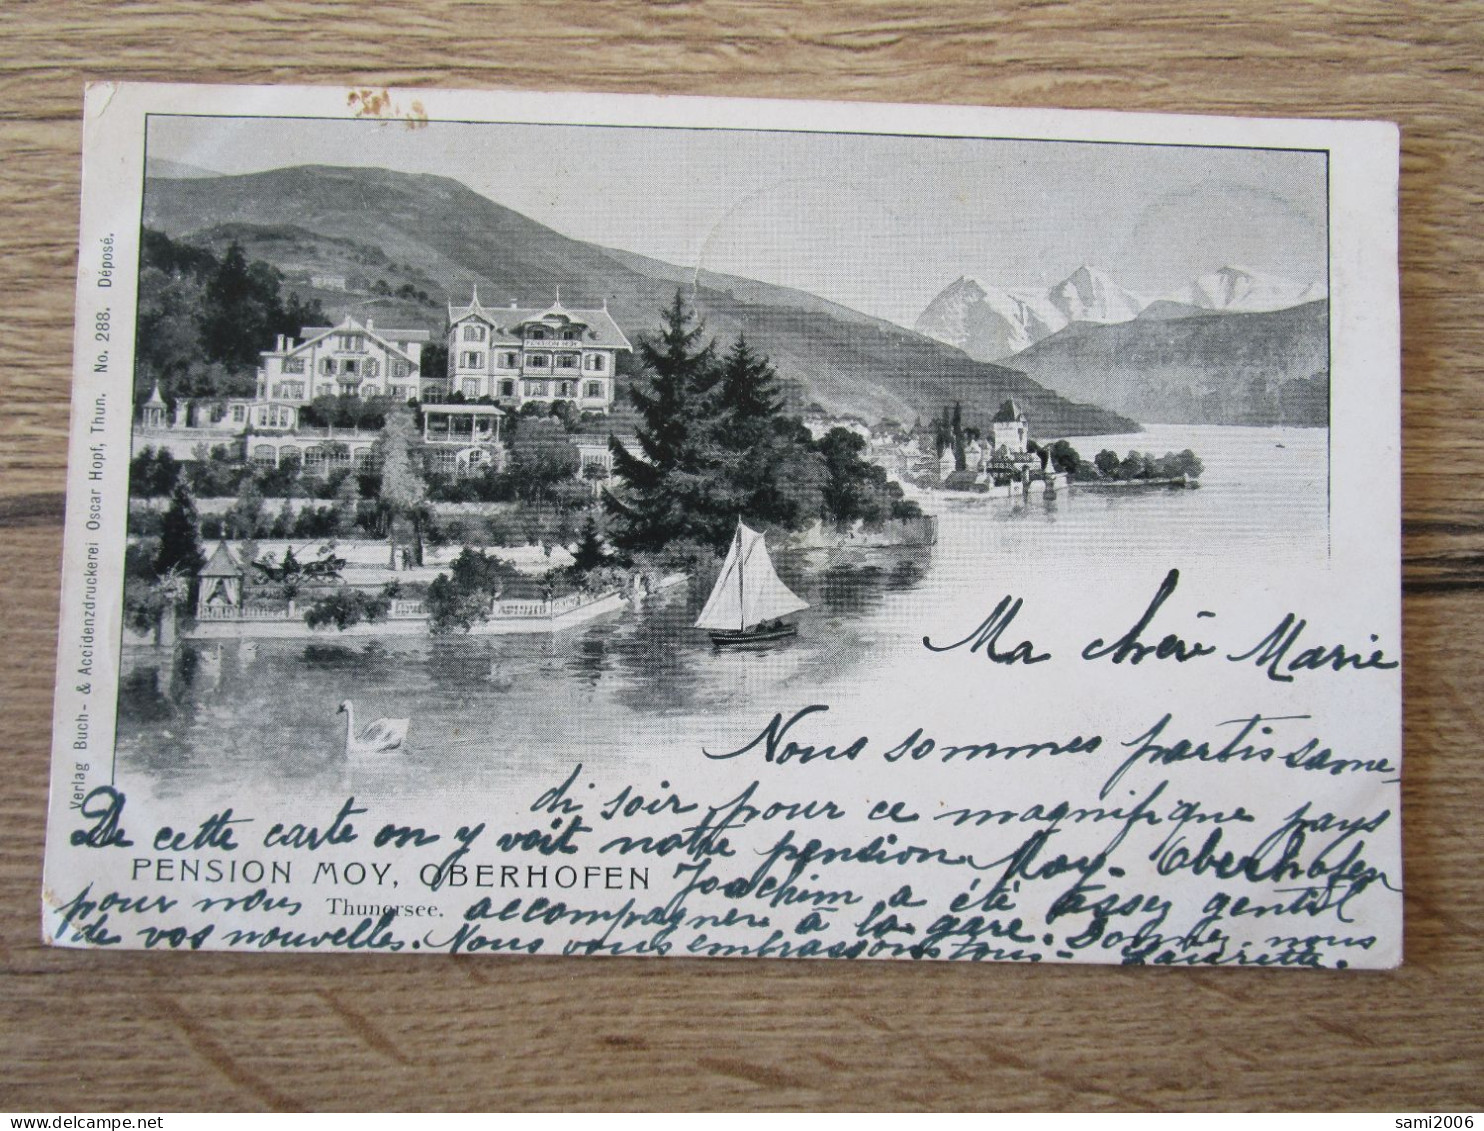 Verlag Buch- & Accidenzdruckerei Oscar Hopf, Thun. No. 288. Déposé.
PENSION MOY
Ma chère Marie
Nous sommes partis same-
di soir pour ce magnifique pays
De cette carte on y voit notre pension Moy. Oberhofen
PENSION MOY, OBERHOFEN
Joachim a été assez gentil
pour nous
Thunersee.
accompagner à la gare. Donnez nous
de vos nouvelles. Nous vous embrassons tous - Laurette.
sami2006
delcampe.net